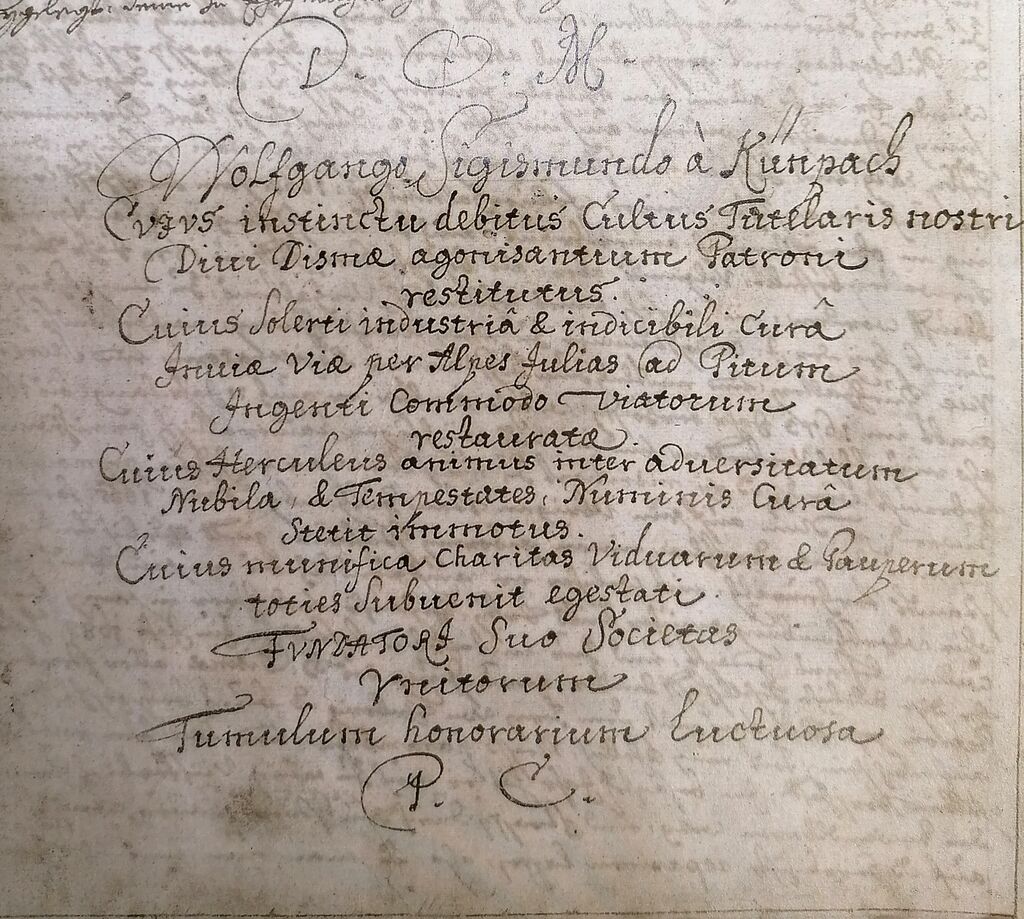 D. O. M.
Wolfgango Sigismundo à Künpach
Cujus instinctu debitus Cultus Tutelaris nostri
Diui Dismæ agonisantium Patroni
restitutus.
Cuius Solerti industriâ & indicibili Curâ
Inuiæ Viæ per Alpes Julias ad Pitum
Ingenti Commodo Viatorum
restauratæ.
Cuius Herculeus animus inter adversitatum
Nubila, & Tempestates, Numinis Curâ
Stetit immotus.
Cuius munifica Charitas Viduarum & Pauperum
toties Subuenit egestati.
FUNDATORI Suo Societas
Vnitorum
Tumulum honorarium Luctuosa
P. C.